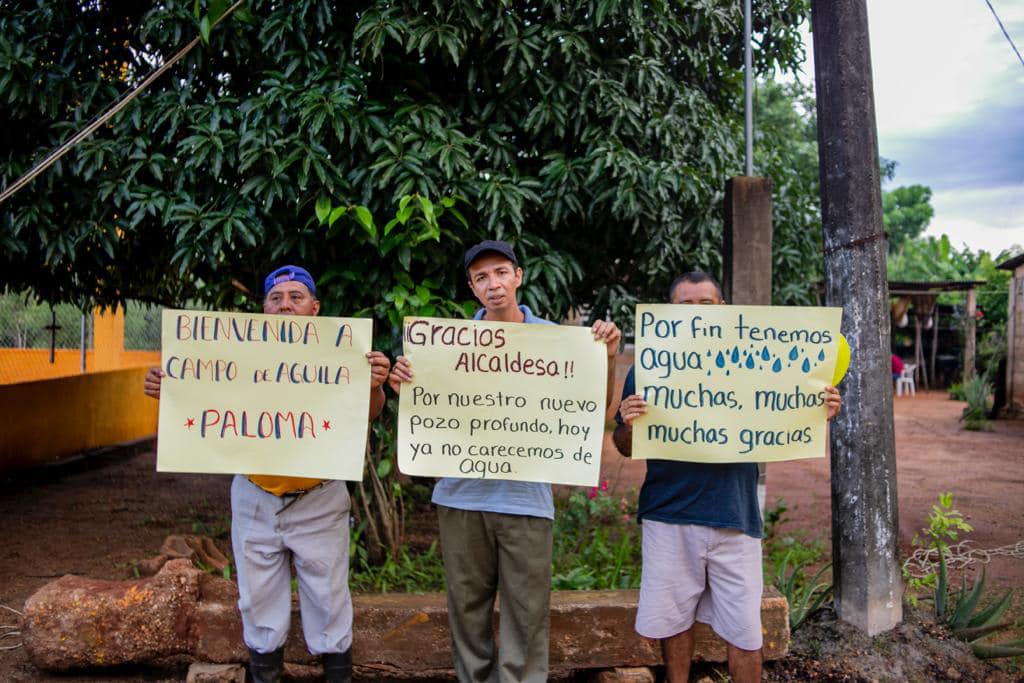 BIENVENIDA A
CAMPO DE AGUILA
* PALOMA *
¡Gracias
Alcaldesa!!
Por nuestro nuevo
pozo profundo, hoy
ya no carecemos de
agua.
Por fin tenemos
agua
muchas, muchas
muchas gracias